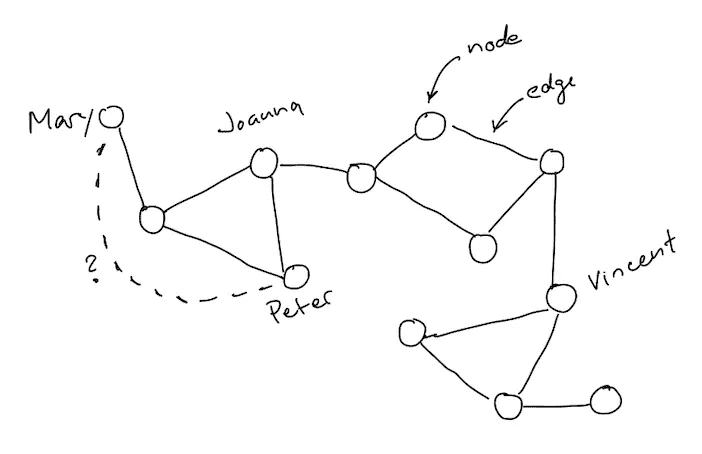 node
edge
Mary
Joanna
?
Peter
Vincent